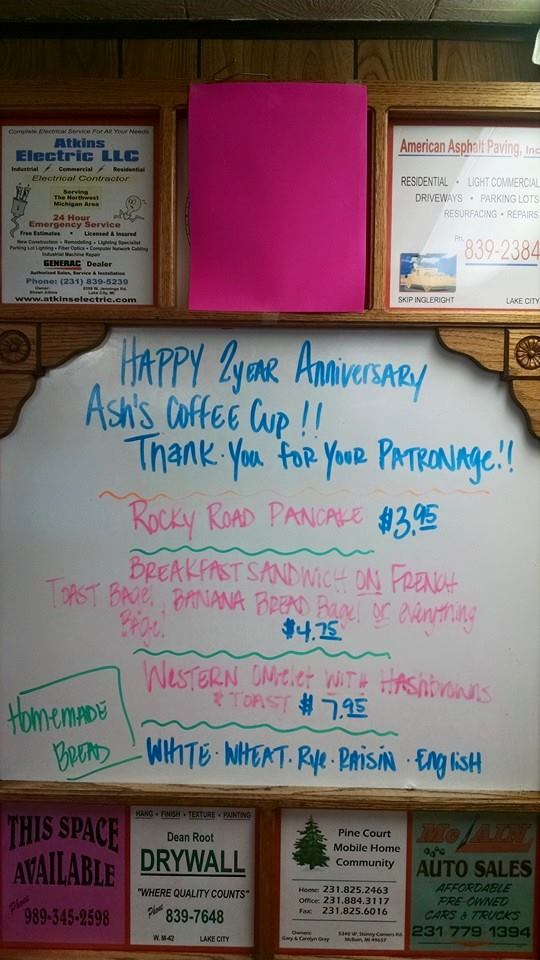 Complete Electrical Service For All Your Needs
Atkins
Electric LLC
Industrial • Commercial • Residential
Electrical Contractor
Serving
The Northwest
Michigan Area
24 Hour
Emergency Service
Free Estimates • Licensed & Insured
New Construction • Remodeling • Lighting Specialist
Parking Lot Lighting • Fiber Optics • Computer Network Cabling
Industrial Machine Repair
GENERAC Dealer
Authorized Sales, Service & Installation
Phone: (231) 839-5239
Owner:
Lake City, MI
www.atkinselectric.com
American Asphalt Paving, Inc
RESIDENTIAL • LIGHT COMMERCIAL
DRIVEWAYS • PARKING LOTS
RESURFACING • REPAIRS
Ph. 839-2384
SKIP INGLERIGHT LAKE CITY
HAPPY 2year Anniversary
Ash's Coffee Cup!!
Thank You for Your Patronage!!
Rocky Road Pancake $3.95
Breakfast Sandwich on French
Toast Bagel, Banana Bread Bagel or everything
Bagel $4.75
Western Omelet with Hashbrowns
& Toast $7.95
Homemade
Bread
White · Wheat · Rye · Raisin · English
THIS SPACE
AVAILABLE
Phone
989-345-2598
HANG • FINISH • TEXTURE • PAINTING
Dean Root
DRYWALL
"WHERE QUALITY COUNTS"
Phone 839-7648
W. M-42 LAKE CITY
Pine Court
Mobile Home
Community
Home: 231.825.2463
Office: 231.884.3117
Fax: 231.825.6016
Owners: 5340 W. Stoney Corners Rd.
Gary & Carolyn Gray McBain, MI 49657
McBAIN
AUTO SALES
AFFORDABLE
PRE-OWNED
CARS & TRUCKS
231 779 1394